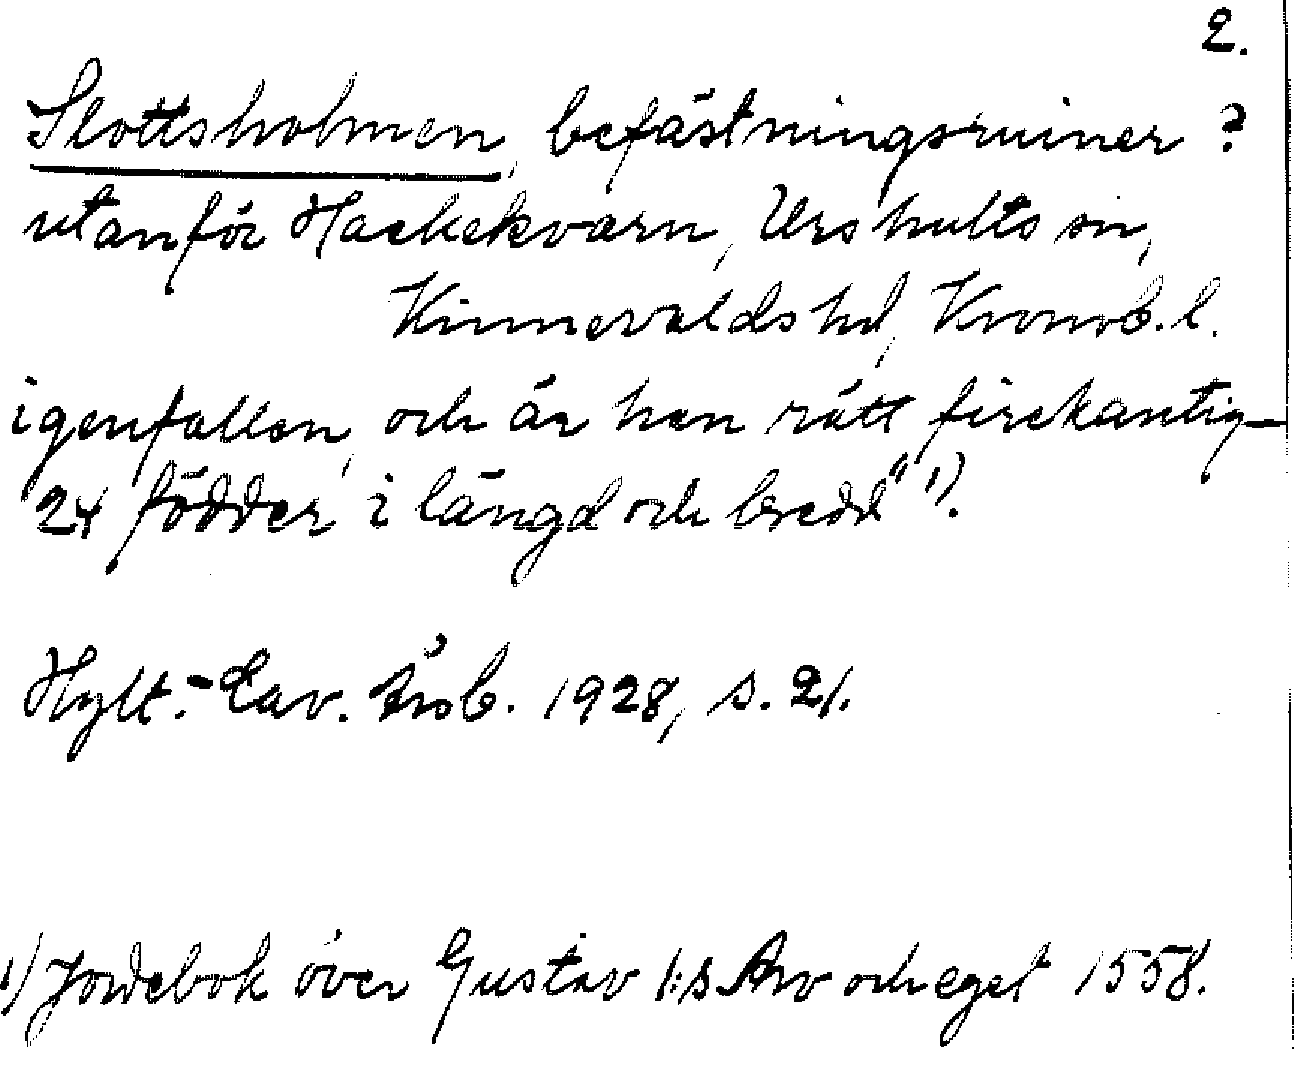 2.
Slottsholmen, befästningsruiner?
utanför Hackekvarn, Urshults sn,
Kinnevalds hd, Kronob. l.
igenfallen, och är han rätt firekantig -
24 födder i längd och bredd" 1).
Hylt.-Cav. Årsb. 1928, s. 21.
1) Jordebok över Gustav I:s Arv och eget 1558.